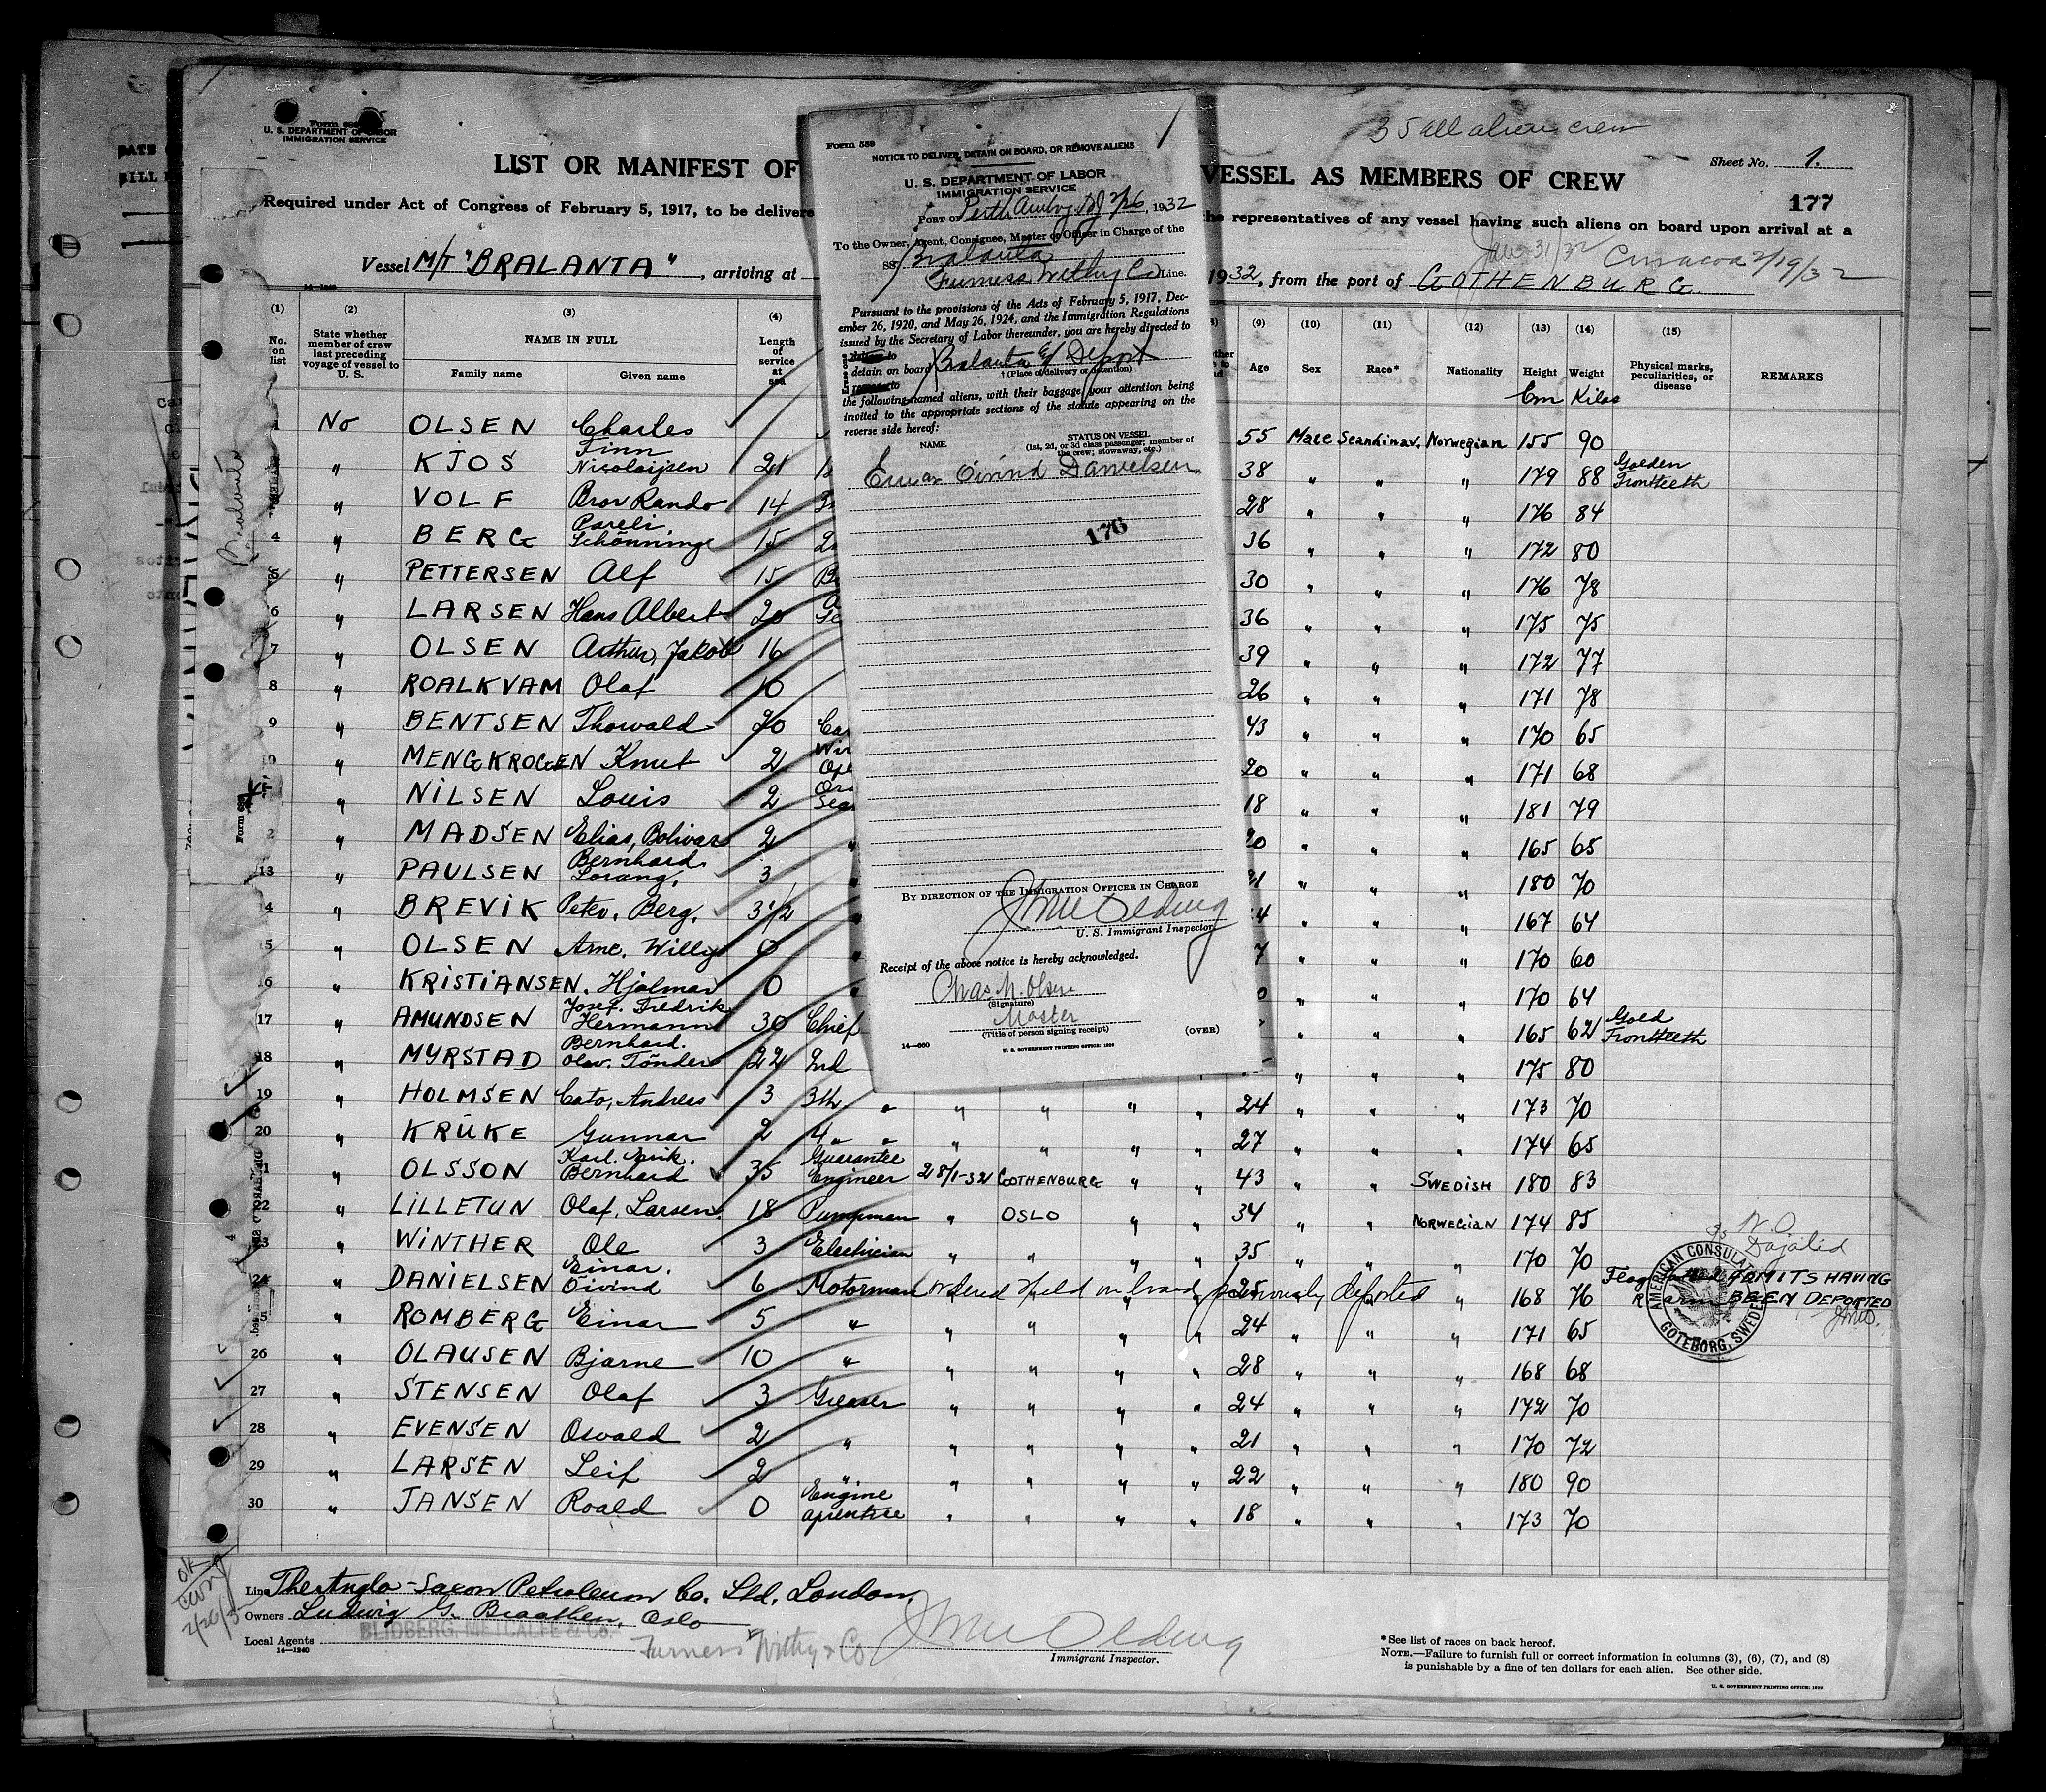 35 all alien crew
Form 689
U. S. DEPARTMENT OF LABOR
IMMIGRATION SERVICE
LIST OR MANIFEST OF
VESSEL AS MEMBERS OF CREW
Sheet No. 1.
177
Required under Act of Congress of February 5, 1917, to be delivere
the representatives of any vessel having such aliens on board upon arrival at a
Jan 31/32 Curacoa 2/19/32
Vessel M/T "BRALANTA", arriving at
1932, from the port of GOTHENBURG.
14-1240
(1) (2) (3) (4) (9) (10) (11) (12) (13) (14) (15)
No. on list
State whether member of crew last preceding voyage of vessel to U. S.
NAME IN FULL
Family name Given name
Length of service at sea
Age Sex Race* Nationality Height Weight
Physical marks, peculiarities, or disease
REMARKS
Cm Kilos
No OLSEN Charles 55 Male Scandinav. Norwegian 155 90
" KJOS Finn Nicolaijsen 21 38 " " " 179 88 Golden Frontteeth
" VOLF Bror Rando 14 28 " " " 176 84
4 " BERG Pareli Schönninge 15 36 " " " 172 80
" PETTERSEN Alf 15 30 " " " 176 78
6 " LARSEN Hans Albert 20 36 " " " 175 75
7 " OLSEN Arthur, Jakob 16 39 " " " 172 77
8 " ROALKVAM Olaf 10 26 " " " 171 78
9 " BENTSEN Thorvald 20 43 " " " 170 65
" MENGKROGEN Knut 2 20 " " " 171 68
" NILSEN Louis 2 18 " " " 181 79
2 " MADSEN Elias, Bolivar 2 20 " " " 165 65
13 " PAULSEN Bernhard Lorang, 3 21 " " " 180 70
4 " BREVIK Peter, Berg, 3 1/2 4 " " " 167 64
5 " OLSEN Arne, Willy 0 7 " " " 170 60
16 " KRISTIANSEN, Hjalmar 0 0 " " " 170 64
17 " AMUNDSEN Josef. Fredrik Hermann 30 Chief " " " 165 62 Gold Frontteeth
18 " MYRSTAD Bernhard. Olav. Tönder 22 2nd " " " 175 80
19 " HOLMSEN Cato, Andreas 3 3th " " " " " 24 " " " 173 70
20 " KRÜKE Gunnar 2 4" " " " " " 27 " " " 174 65
21 " OLSSON Karl. Erik. Bernhard 35 Guarantee Engineer 28/1-32 GOTHENBURG " " 43 " " SWEDISH 180 83
22 " LILLETUN Olaf, Larsen. 18 Pumpman " OSLO " " 34 " " NORWEGIAN 174 85
3 " WINTHER Ole 3 Electrician " " " " 35 " " " 170 70
24 " DANIELSEN Einar. Öivind 6 Motorman ordered held on board previously deported 25 " 168 76 ADMITS HAVING BEEN DEPORTED
5 " ROMBERG Einar 5 " " " " " 24 " " " 171 65
26 " OLAUSEN Bjarne 10 " " " " " 28 " " " 168 68
27 " STENSEN Olaf 3 Greaser " " " " 24 " " " 172 70
28 " EVENSEN Osvald 2 " " " " " 21 " " " 170 72
29 " LARSEN Leif 2 " " " " " 22 " " " 180 90
30 " JANSEN Roald 0 Engine aprentice " " " " 18 " " " 173 70
AMERICAN CONSULATE
GOTEBORG, SWEDEN
Line The Anglo-Saxon Petroleum Co. Ltd. London.
Owners Ludwig G. Braathen, Oslo
BLIDBERG, METCALFE & Co.
Local Agents Furness Withy & Co
14-1240
Immigrant Inspector.
* See list of races on back hereof.
NOTE.—Failure to furnish full or correct information in columns (3), (6), (7), and (8)
is punishable by a fine of ten dollars for each alien. See other side.
U. S. GOVERNMENT PRINTING OFFICE: 1929
Form 559
NOTICE TO DELIVER, DETAIN ON BOARD, OR REMOVE ALIENS
U. S. DEPARTMENT OF LABOR
IMMIGRATION SERVICE
PORT OF Perth Amboy NJ 2/26, 1932
To the Owner, Agent, Consignee, Master or Officer in Charge of the
SS Bralanta
Furness Withy Co Line.
Pursuant to the provisions of the Acts of February 5, 1917, Dec-
ember 26, 1920, and May 26, 1924, and the Immigration Regulations
issued by the Secretary of Labor thereunder, you are hereby directed to
detain on board Bralanta Ex Deport
† (Place of delivery or detention)
the following-named aliens, with their baggage, your attention being
invited to the appropriate sections of the statute appearing on the
reverse side hereof:
NAME
STATUS ON VESSEL
(1st, 2d, or 3d class passenger; member of
the crew; stowaway, etc.)
Einar Oivind Danielsen
176
BY DIRECTION OF THE IMMIGRATION OFFICER IN CHARGE
U. S. Immigrant Inspector.
Receipt of the above notice is hereby acknowledged.
Chas. M. Olsen
(Signature)
Master
(Title of person signing receipt)
(OVER)
14—560
U. S. GOVERNMENT PRINTING OFFICE: 1929